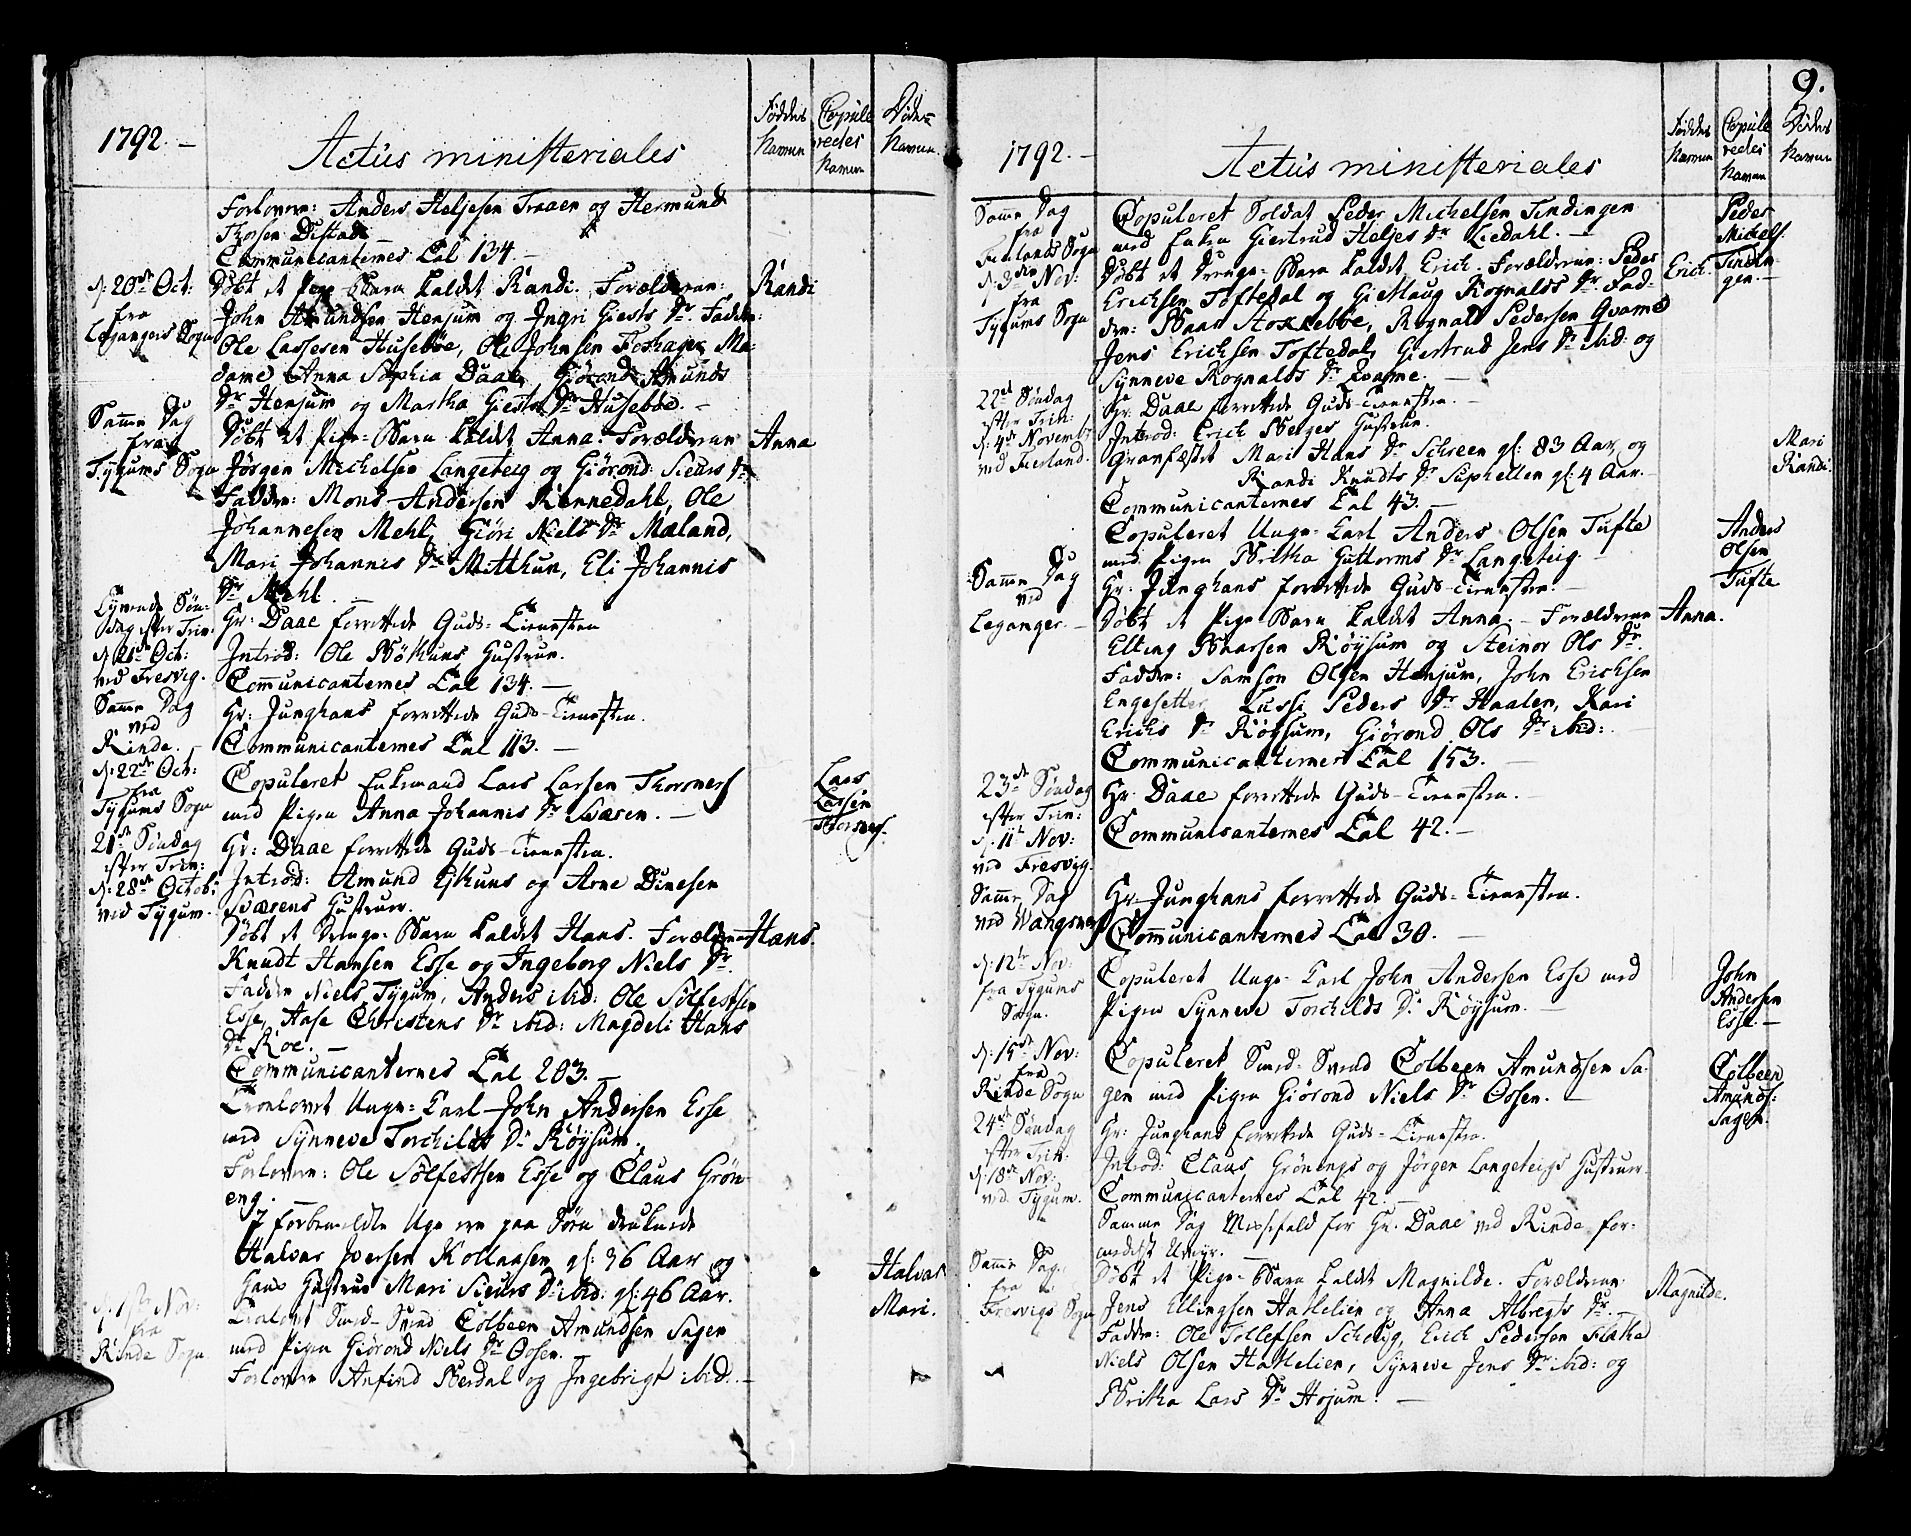 1792. —
Actus ministeriales
Føddes Navne
Copule redes Navne
Dødes Navne.
Forlovere: Anders Heljesen Traaen og Hermund
Thorsen Distad
Communicanternes Tal 134. —
d: 20de Oct:
fra
Legangers Sogn
Døbt et Pige-Barn kaldet Randi. Forældrene:
Randi
John Amundsen Henjum og Ingri Giests Dr. Faddere:
Ole Lassesen Husebøe, Ole Johnsen Foshage, Ma-
dame Anna Sophia Daae, Giørond Amunds
Dr Henjum og Martha Giests Dr Husebøe. —
Samme Dag
fra
Tygums Sogn
Døbt et Pige-Barn kaldet Anna. Forældrene
Anna
Jørgen Michelsen Langeteig og Giørond Sieurs Dr
Faddere: Mons Andersen Rennedahl, Ole
Johannesen Mehl, Giøri Niels Dr Mæland,
Mari Johannis Dr Mitthun, Eli Johannis
Dr Mehl. —
Tyvende Søn-
dag efter Trin:
d: 21de Oct:
ved Fresvig.
Hr: Daae forrettede Guds-Tienesten
Introd: Ole Bøtuns Hustrue.
Communicanternes Tal 134. —
Samme Dag
ved
Rinde. —
Hr: Junghans forrettede Guds-Tienesten.
Communicanternes Tal 113. —
d: 22de Oct:
fra
Tygums Sogn
Copuleret Enkemand Lars Larsen Thorsnes
med Pigen Anna Johannis Dr Sværen. —
Lars
Larsen
Thorsnes.
21de Søndag
efter Trin:
d: 28de Octob:
ved Tygum.
Hr: Daae forrettede Guds-Tienesten.
Introd: Amund Ejtuns og Arne Dinesen
Sværens Hustruer.
Døbt et Drenge-Barn kaldet Hans. Forældrene
Hans.
Knudt Hansen Esse og Ingeborg Niels Dr.
Faddere Niels Tygum, Anders ibid: Ole Sølfestsen
Esse, Aase Christens Dr ibid: Magdeli Hans
Dr Roe. —
Communicanternes Tal 203. —
Trolovet Unge-Karl John Andersen Esse
med Synneve Torchilds Dr Røysum.
Forlovere: Ole Sølfestsen Esse og Claus Grøn-
eng.
I forbemeldte Uge ere paa Søen druknede
Halvar Iversen Kollaasen gl: 36 Aar og
Halvar
hans Hustrue Mari Sieurs Dr ibid: gl: 46 Aar.
Mari.
d: 1ste Nov:
fra
Rinde Sogn
Trolovet Smed-Svend Colbeen Amundsen Sagen
med Pigen Giørond Niels Dr Ossen.
Forlovere Anfind Berdal og Ingebrigt ibid: —
9.
1792. —
Actus ministeriales
Føddes Navne
Copule redes Navne
Dødes Navne
Samme Dag
fra
Fierlands Sogn
Copuleret Soldat Peder Michelsen Tindingen
med Enken Giertrud Heljes Dr Liedahl. —
Peder
Michels.
Tindin-
gen. —
d: 3die Nov:
fra
Tygums Sogn
Døbt et Drenge-Barn kaldet Erich. Forældrene: Peder
Erich.
Erichsen Toftedal og Gietlaug Rognalds Dr. Fad-
dere: Baar Stokkebøe, Rognald Pedersen Qvame
Jens Erichsen Toftedal, Giertrud Jens Dr ibid: og
Synneve Rognalds Dr Qvame. —
22de Søndag
efter Trin:
d: 4de Novembr
ved Fierland.
Hr: Daae forrettede Guds-Tienesten. —
Introd: Erich Berges Hustrue.
Gravfæstet Mari Hans Dr Schreen gl: 83 Aar, og
Mari
Randi Knudts Dr Suphellen gl: 4 Aar. —
Randi.
Communicanternes Tal 43. —
Copuleret Unge-Karl Anders Olsen Tufte
med Pigen Britha Guttorms Dr Langeteig —
Anders
Olsen
Tufte
Samme Dag
ved
Leganger. —
Hr: Junghans forrettede Guds-Tienesten. —
Døbt et Pige-Barn kaldet Anna. — Forældrene
Anna.
Elling Baarsen Røysum og Steinor Ols Dr.
Faddere: Samson Olsen Henjum, John Erichsen
Engesetter, Lussi Peders Dr Haaten, Kari
Erichs Dr Røysum, Giørond Ols Dr ibid: —
Communicanternes Tal 153. —
23de Søndag
efter Trin:
d. 11te Nov:
ved Fresvig.
Hr: Daae forrettede Guds-Tienesten.
Communicanternes Tal 42. —
Samme Dag
ved Wangsnes
Hr: Junghans forrettede Guds-Tienesten.
Communicanternes Tal 30. —
d: 12te Nov:
fra Tygums
Sogn.
Copuleret Unge-Karl John Andersen Esse med
Pigen Synneve Torchilds Dr Røysum. —
John
Andersen
Esse. —
d: 15de Nov:
fra
Rinde Sogn
Copuleret Smed-Svend Colbeen Amundsen Sa-
gen med Pigen Giørond Niels Dr Ossen. —
Colbeen
Amunds:
Sagen.
24de Søndag
efter Trin:
d: 18de Nov:
ved Tygum.
Hr: Junghans forrettede Guds-Tienesten.
Introd: Claus Grønengs og Jørgen Langeteigs Hustruer
Communicanternes Tal 42. —
Samme Dag Messefald for Hr. Daae ved Rinde for-
medelst Uveyr. —
Samme Dag
fra
Fresvigs Sogn
Døbt et Pige-Barn kaldet Magnilde. Forældrene:
Magnilde.
Jens Ellingsen Hatlelien og Anna Albregts Dr. —
Faddere: Ole Tollefsen Schoug, Erich Pedersen Flathe
Niels Olsen Hatlelien, Synneve Jens Dr ibid: og
Britha Lars Dr Hojum. —